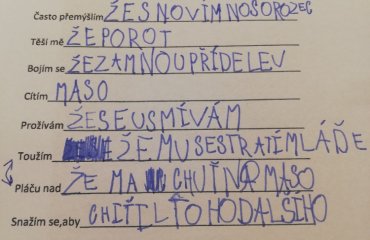 Často přemýšlím ŽESNOVÍMNOSOROZEC
Těší mě ŽEPOROT
Bojím se ŽEZAMNOUPŘÍDELEV
Cítím MASO
Prožívám ŽESEUSMÍVÁM
Toužím ŽEMUSESTRATÍMLÁĎE
Pláču nad ŽE MA CHUŤNA MASO
Snažím se,aby CHIŤILTOHODALŠÍHO